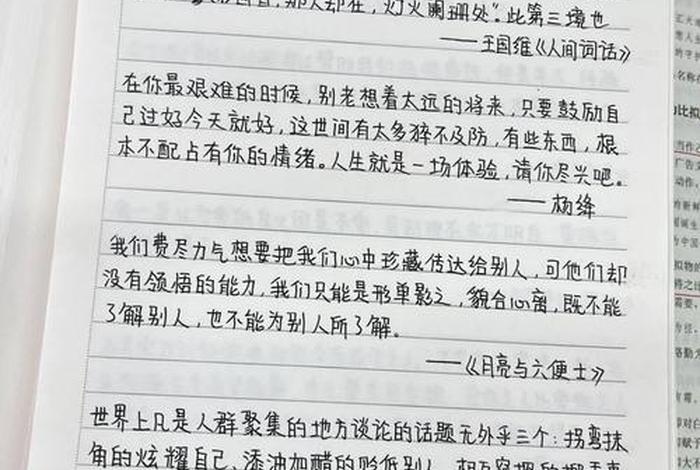 那人却在，灯火阑珊处”。此第三境也
——王国维《人间词话》
在你最艰难的时候，别老想着太远的将来，只要鼓励自
己过好今天就好，这世间有太多猝不及防，有些东西，根
本不配占有你的情绪。人生就是一场体验，请你尽兴吧。
——杨绛
我们费尽力气想要把我们心中珍藏传达给别人，可他们却
没有领悟的能力，我们只能是形单影之，貌合心离，既不能
了解别人，也不能为别人所了解。
——《月亮与六便士》
世界上凡是人群聚集的地方谈论的话题无外乎三个：拐弯抹
角的炫耀自己，添油加醋的贬低别人，相互窥探